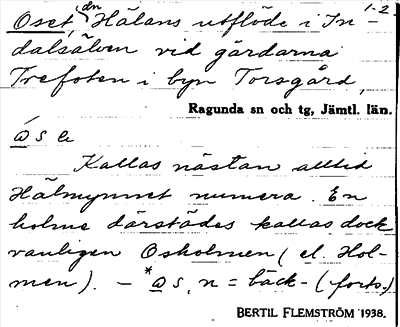 1-2.
Oset, ån Hälans utflöde i In-
dalsälven vid gårdarna
Trefoten i byn Torsgård,
Ragunda sn och tg, Jämtl. län.
ɷ́ s e
Kallas nästan alltid
Hälmynnet numera. En
holme därstädes kallas dock
vanligen Osholmen (el. Hol-
men). – *ɷ s, n = bäck- (forts.)
BERTIL FLEMSTRÖM 1938.